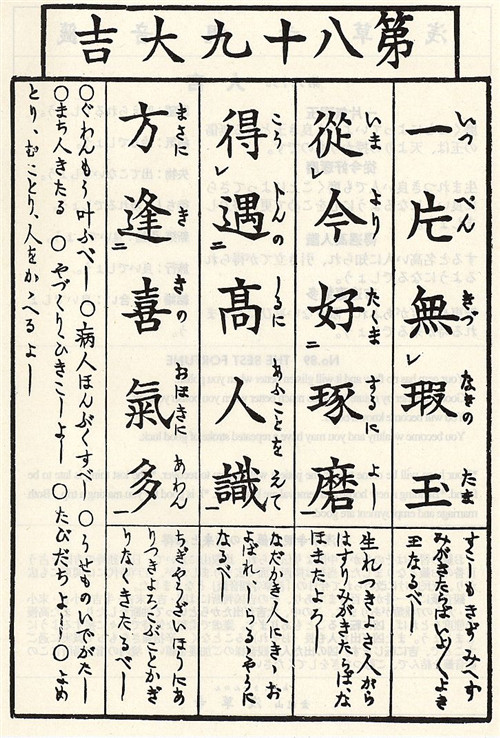 第八十九大吉
一片無瑕玉
いつぺんきづなきのたま
從今好琢磨
いまよりたくまするによし
得遇高人識
こうじんのしるにあふことをえて
方逢喜氣多
まさにききのおほきにあわん
すこしもきずみへす
みがきたらばいよ〱よき
玉なるべし
生れつきよき人から
はすりみがきたらばな
ほまたよろし
なだかき人にきゝお
よばれしらるゝやうに
なるべし
ちぎやうざいほうにあ
りつきよろこぶことかぎ
りなく
〇ぐわんもう叶ふべし〇病人ほんぶくすべし〇うせものいでがたし
〇まち人きたる〇やづくりひきこしよし〇たびだちよし〇よめ
とり、むことり、人をかゝへるよし